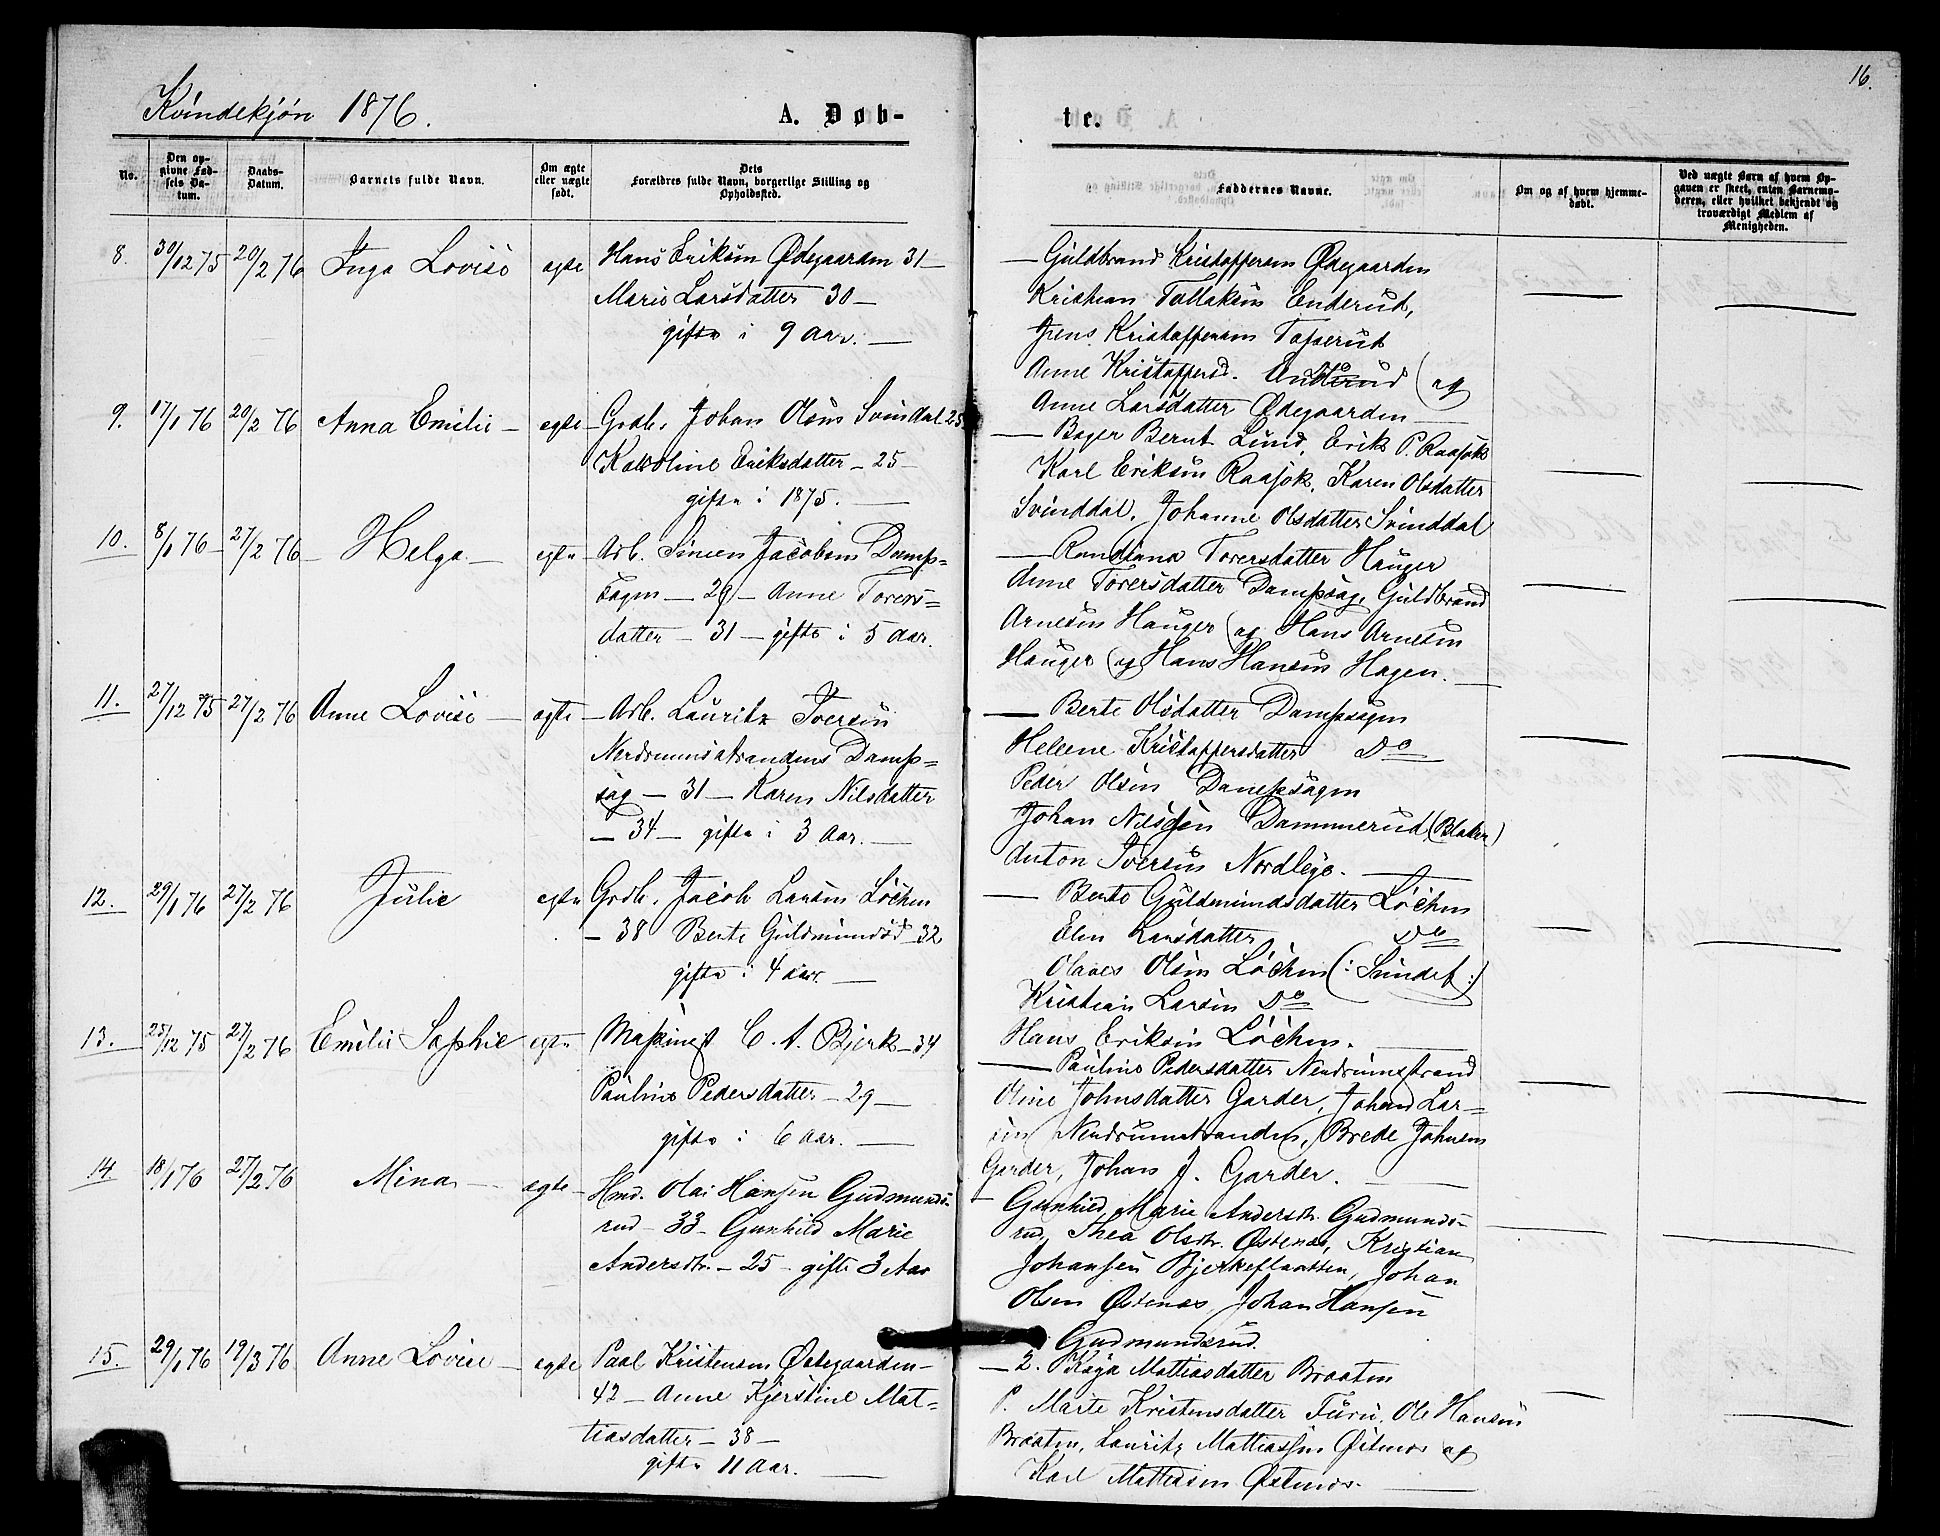 16.
Kvindekjøn 1876.
A. Døb-
te.
No.
Den op-
givne Fød-
sels Da-
tum.
Daabs-
Datum.
Barnets fulde Navn.
Om ægte
eller uægte
født.
Dets
Forældres fulde Navn, borgerlige Stilling og
Opholdssted.
Faddernes Navne.
Om og af hvem hjemme-
døbt.
Ved uægte Børn af hvem Op-
gaven er skeet, enten Barnemo-
deren, eller hvilket bekjendt og
troværdigt Medlem af
Menigheden.
8. 30/12 75 20/2 76 Inga Lovise ægte Hans Eriksen Ødegaarden 31 —
Marie Larsdatter 30 —
gifte i 9 Aar. —
— Guldbrand Kristoffersen Ødegaarden
Kristian Tollaksen Enderud,
Jens Kristoffersen
Anne Kristoffersd. Enderud Do (og
Anne Larsdatter Ødegaarden —
9. 17/1 76 20/2 76 Anna Emilie — ægte — Grdb. Johan Olsen Svindal 25
Karoline Eriksdatter — 25 —
gifte i 1875. —
— Bager Bernt Lund, Erik P. Raasok
Karl Eriksen Raasok, Karen Olsdatter
Svinddal, Johanne Olsdatter Svinddal
10. 8/1 76 — 27/2 76 — Helga — ægte — Arb. Simen Jacobsen Damp=
sagen — 29 — Anne Torers=
datter — 31 — gifte i 5 Aar.
— Randiana Torersdatter Hauger
Anne Torersdatter Dampsag, Guldbrand
Arnesen Hauger (og Hans Arnesen
Hauger (og Hans Hansen Hagen. —
11. 27/12 75 27/2 76 Anne Lovise — ægte — Arb. Lauritz Iversen
Nerdrumsstrandens Damp=
sag — 31 — Karen Nilsdatter
— 34 — gifte i 3 Aar. —
— Berte Olsdatter Dampsagen
Helene Kristoffersdatter Do
Peder Olsen Dampsagen
Johan Nilssen Dammerud (Blaker)
Anton Iversen Nordleje. —
12. 29/1 76 27/2 76 Julie ægte Grdb. Jacob Larsen Løchen
— 38 Berte Guldmundsd — 32
gifte i 4 Aar. —
— Berte Guldmundsdatter Løchen
Elen Larsdatter Do
Olaves Olsen Løchen (: Sundet :)
Kristian Larsen Do
Hans Eriksen Løchen. —
13. 25/12 75 27/2 76 Emilie Sophie ægte Maskinist C. A. Bjerk — 34
Pauline Pedersdatter — 29 —
gifte i 6 Aar. —
— Pauline Pedersdatter Nerdrumstrand
Oline Johnsdatter Garder, Johan Lar=
sen Nerdrumstranden, Brede Johnsen
Garder, Johan J. Garder. —
14. 18/1 76 27/2 76 Mina — ægte — Hmd. Olai Hansen Gudmunds-
rud — 33 — Gunhild Marie
Andersdtr. — 25 — gifte 3 Aar
— Gunhild Marie Andersdtr. Gudmunds-
rud, Thea Olsdtr. Østenæs, Kristian
Johansen Bjerkeflaatten, Johan
Olsen Østenæs, Johan Hansen
Gudmundsrud.
15. 29/1 76 19/3 76 Anne Lovise — ægte Paal Kristensen Ødegaarden —
42 — Anne Kjerstine Mat=
tiasdatter — 38 —
gifte 11 Aar. —
— 2. Kaja Mattiasdatter Braaten
P. Marte Kristensdatter Furu, Ole Hansen
Braaten, Lauritz Mattiassen Østmoe og
Karl Mattiasen Østmoe. —